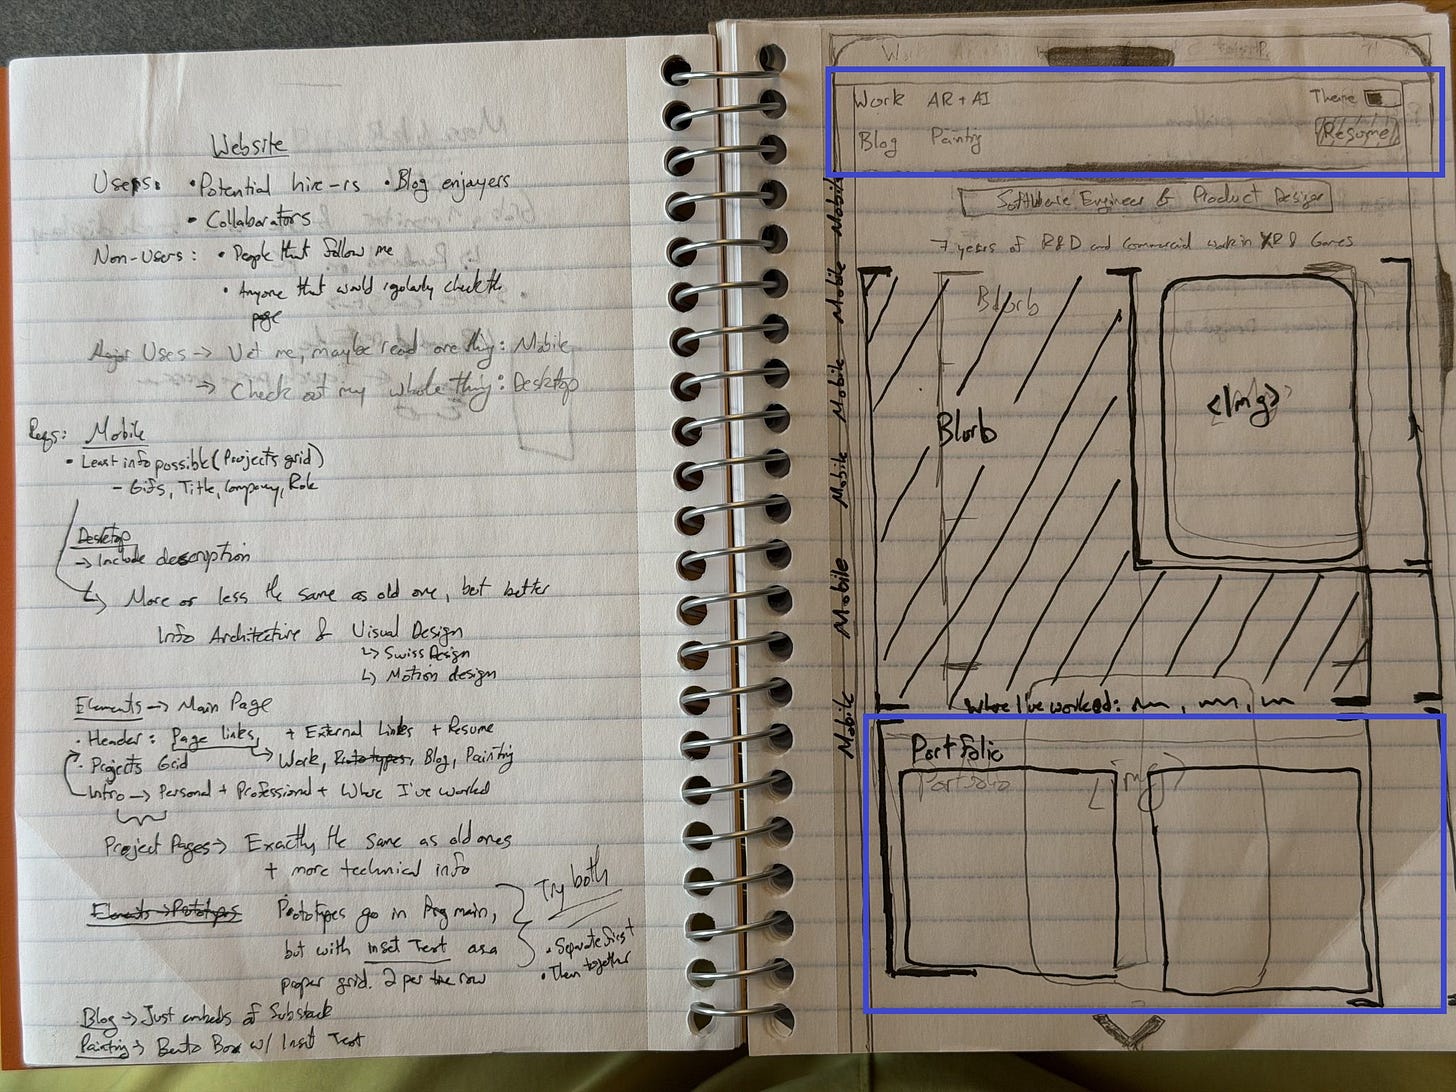 Website
Users: • Potential hire-rs • Blog enjoyers
• Collaborators
Non-Users: • People that follow me
• Anyone that would regularly check the
page
Major Uses → Vet me, maybe read one thing: Mobile
→ Check out my whole thing: Desktop
Reqs: Mobile
• Least info possible (Projects grid)
- Gifs, Title, Company, Role
Desktop
→ Include description
More or less the same as old one, but better
Info Architecture & Visual Design
↳ Swiss Design
↳ Motion design
Elements → Main Page
• Header: Page links, + External Links + Resume
• Projects Grid → Work, Prototypes, Blog, Painting
• Intro → Personal + Professional + Where I've worked
Project Pages → Exactly the same as old ones
+ more technical info
Elements → Prototypes
Prototypes go in Prg main,
but with inset Text as a
proper grid. 2 per the row
Try both
• Separate first
• Then together
Blog → Just embeds of Substack
Painting → Bento Box w/ Inset Text
Work AR + AI Theme
Blog Painting Resume
Software Engineer & Product Designer
7 years of R&D and commercial work in XR & Games
Blorb
Blorb
<img>
Where I've worked:
Portfolio
Portfolio
<img>
Mobile Mobile Mobile Mobile Mobile Mobile Mobile